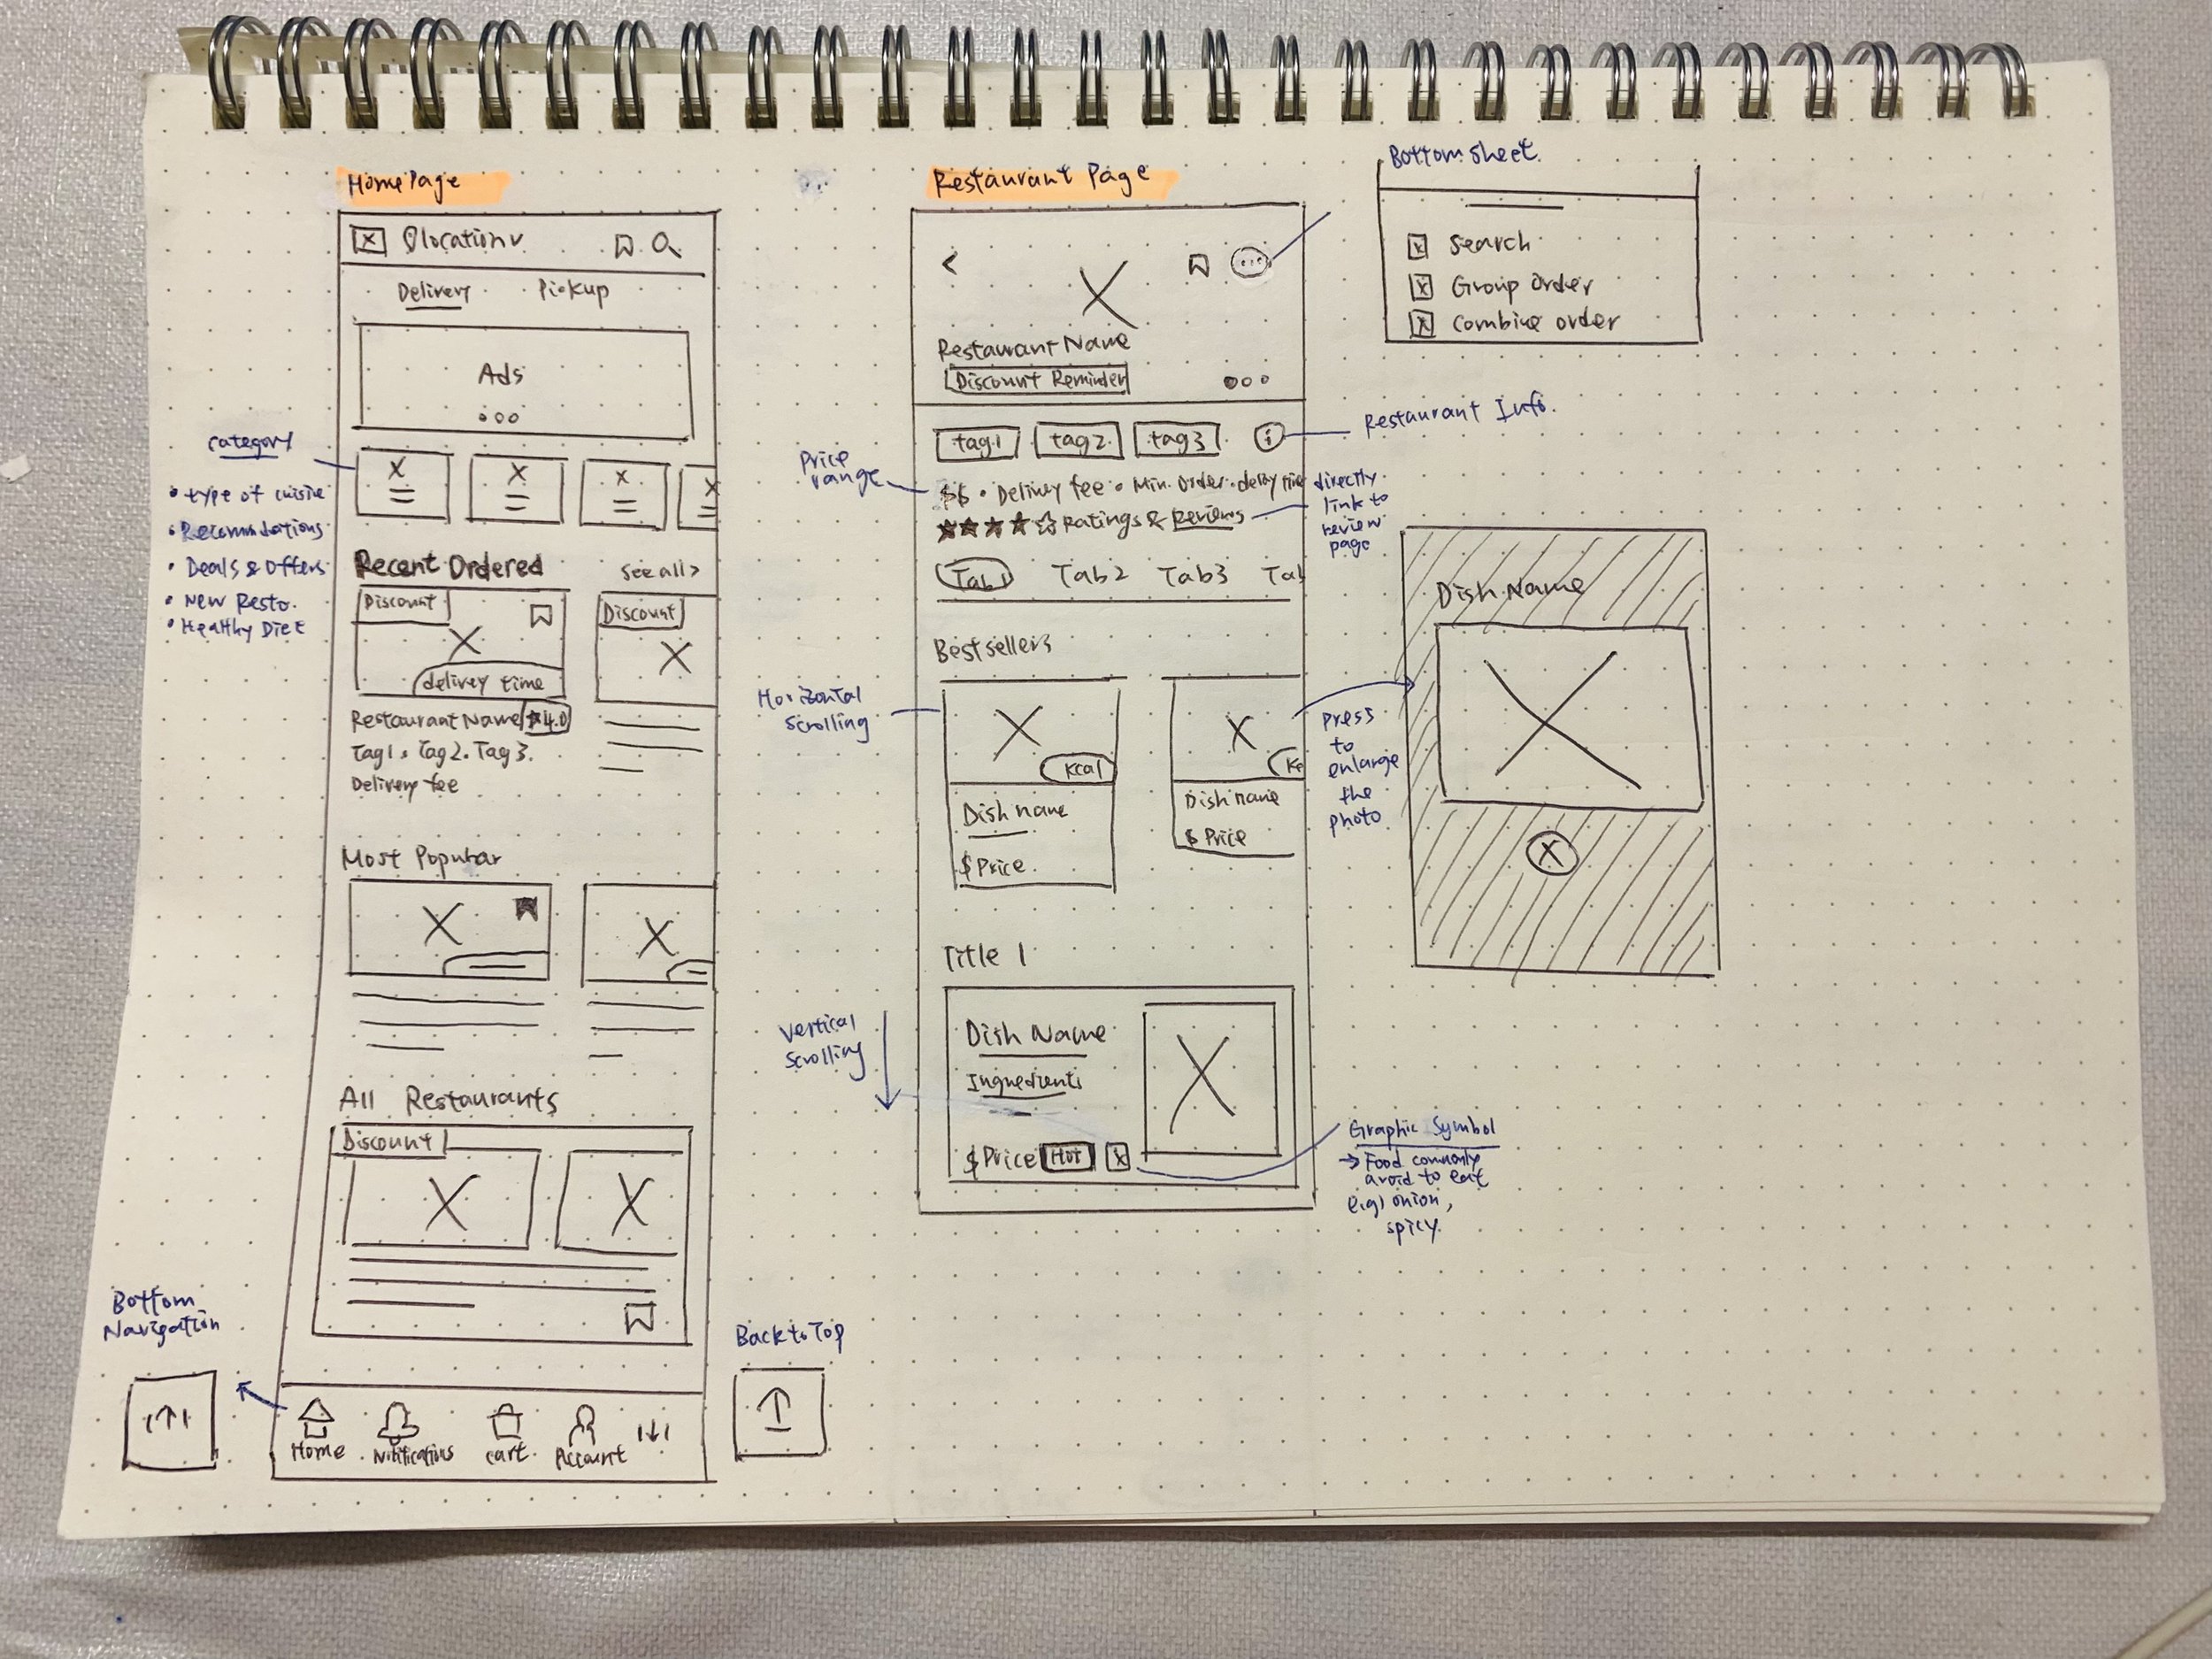 HomePage
location
Delivery
Pickup
Ads
category
• type of cuisie
• Recommdations
• Deals & Offers
• New Resto.
• Healthy Diet
Recent Ordered
see all >
Discount
Discount
delivey time
Restaurant Name ★4.0
Tag1. Tag2. Tag3.
Delivery fee
Most Popular
All Restaurants
Discount
Bottom
Navigation
Home
Notifications
cart.
Account
Back to Top
Restaurant Page
Restaurant Name
Discount Reminder
tag1
tag2
tag3
Restaurant Info.
Price
range
• Delivey fee • Min. Order •
★★★★☆ Ratings & Reviews
directly
link to
review
page
Tab1
Tab2
Tab3
Tab
Bestsellers
Horizontal
Scrolling
Kcal
Kc
Dish name
$ Price
Dish name
$ Price
press
to
enlarge
the
photo
Title 1
vertical
scrolling
Dish Name
Ingredients
$ Price
Hot
Graphic Symbol
→ Food commonly
avoid to eat
e.g) onion,
spicy.
Bottom sheet.
search
Group order
combine order
Dish Name